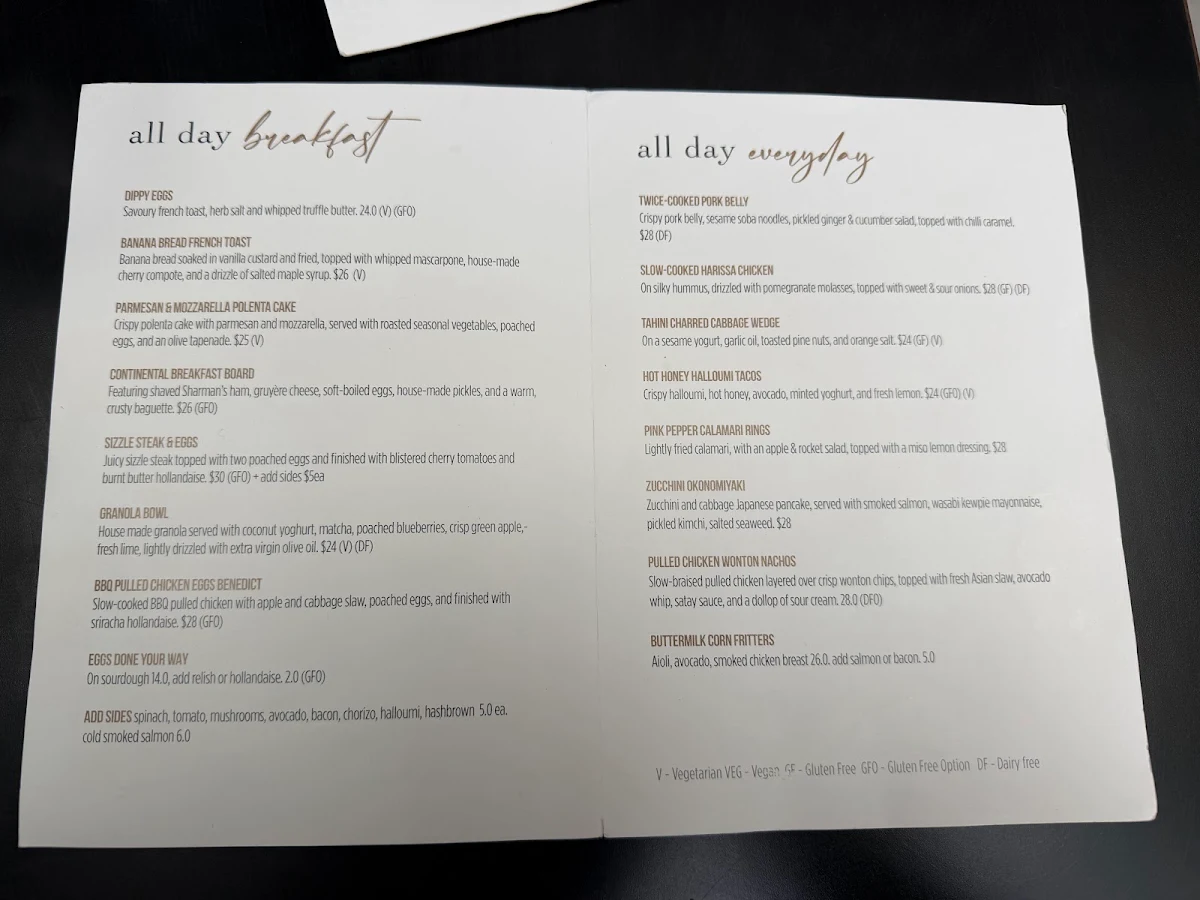 all day breakfast
DIPPY EGGS
Savoury french toast, herb salt and whipped truffle butter. 24.0 (V) (GFO)
BANANA BREAD FRENCH TOAST
Banana bread soaked in vanilla custard and fried, topped with whipped mascarpone, house-made
cherry compote, and a drizzle of salted maple syrup. $26 (V)
PARMESAN & MOZZARELLA POLENTA CAKE
Crispy polenta cake with parmesan and mozzarella, served with roasted seasonal vegetables, poached
eggs, and an olive tapenade. $25 (V)
CONTINENTAL BREAKFAST BOARD
Featuring shaved Sharman's ham, gruyère cheese, soft-boiled eggs, house-made pickles, and a warm,
crusty baguette. $26 (GFO)
SIZZLE STEAK & EGGS
Juicy sizzle steak topped with two poached eggs and finished with blistered cherry tomatoes and
burnt butter hollandaise. $30 (GFO) + add sides $5ea
GRANOLA BOWL
House made granola served with coconut yoghurt, matcha, poached blueberries, crisp green apple,-
fresh lime, lightly drizzled with extra virgin olive oil. $24 (V) (DF)
BBQ PULLED CHICKEN EGGS BENEDICT
Slow-cooked BBQ pulled chicken with apple and cabbage slaw, poached eggs, and finished with
sriracha hollandaise. $28 (GFO)
EGGS DONE YOUR WAY
On sourdough 14.0, add relish or hollandaise. 2.0 (GFO)
ADD SIDES spinach, tomato, mushrooms, avocado, bacon, chorizo, halloumi, hashbrown 5.0 ea.
cold smoked salmon 6.0
all day everyday
TWICE-COOKED PORK BELLY
Crispy pork belly, sesame soba noodles, pickled ginger & cucumber salad, topped with chilli caramel.
$28 (DF)
SLOW-COOKED HARISSA CHICKEN
On silky hummus, drizzled with pomegranate molasses, topped with sweet & sour onions. $28 (GF) (DF)
TAHINI CHARRED CABBAGE WEDGE
On a sesame yogurt, garlic oil, toasted pine nuts, and orange salt. $24 (GF) (V)
HOT HONEY HALLOUMI TACOS
Crispy halloumi, hot honey, avocado, minted yoghurt, and fresh lemon. $24 (GFO) (V)
PINK PEPPER CALAMARI RINGS
Lightly fried calamari, with an apple & rocket salad, topped with a miso lemon dressing. $28
ZUCCHINI OKONOMIYAKI
Zucchini and cabbage Japanese pancake, served with smoked salmon, wasabi kewpie mayonnaise,
pickled kimchi, salted seaweed. $28
PULLED CHICKEN WONTON NACHOS
Slow-braised pulled chicken layered over crisp wonton chips, topped with fresh Asian slaw, avocado
whip, satay sauce, and a dollop of sour cream. 28.0 (DFO)
BUTTERMILK CORN FRITTERS
Aioli, avocado, smoked chicken breast 26.0. add salmon or bacon. 5.0
V - Vegetarian VEG - Vegan GF - Gluten Free GFO - Gluten Free Option DF - Dairy free